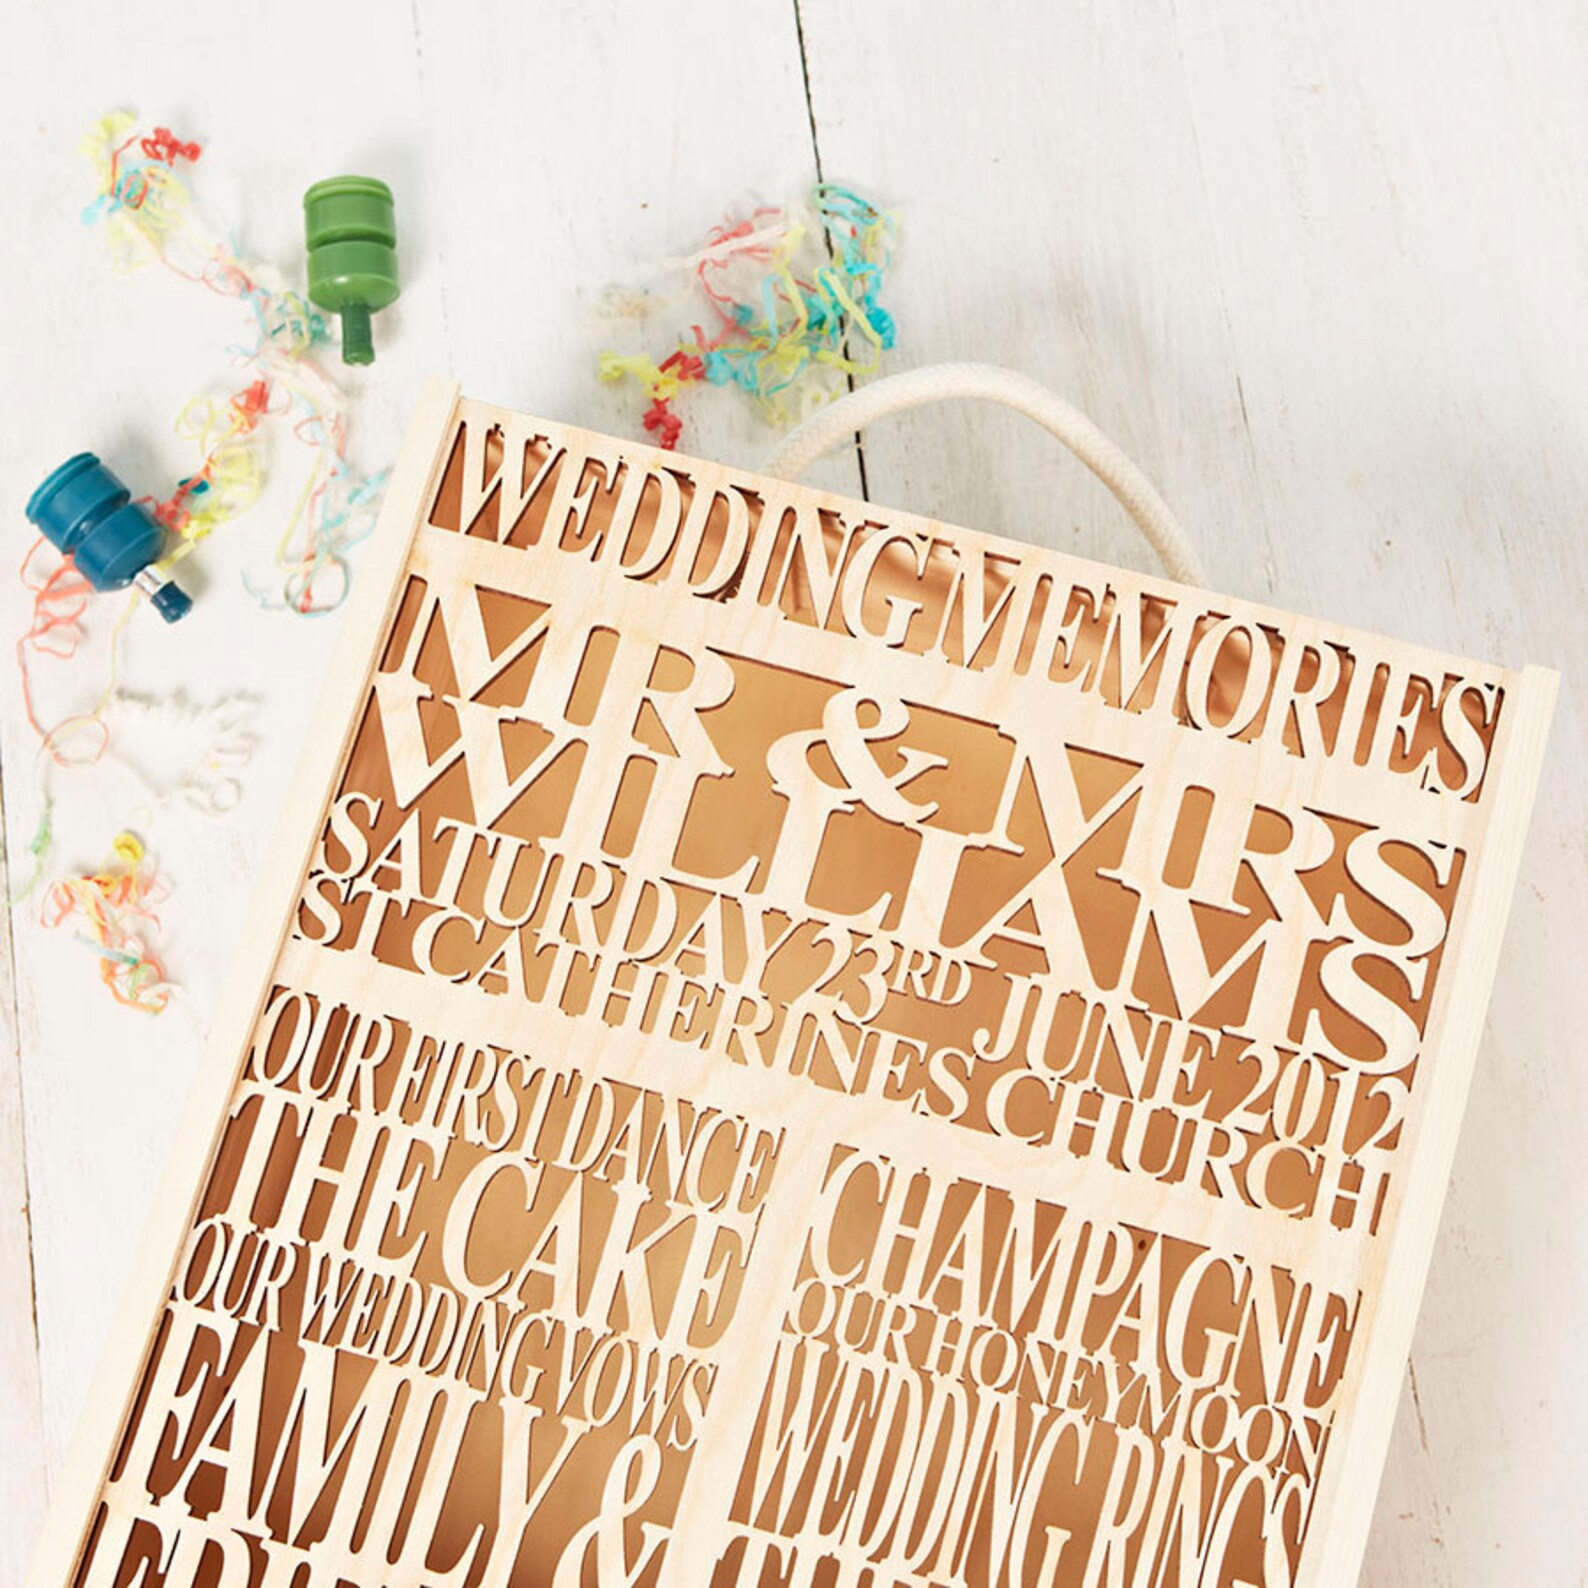 WEDDING MEMORIES
MR & MRS
WILLIAMS
SATURDAY 23RD JUNE 2012
ST CATHERINES CHURCH
OUR FIRST DANCE
THE CAKE
OUR WEDDING VOWS
FAMILY &
CHAMPAGNE
OUR HONEYMOON
WEDDING RINGS